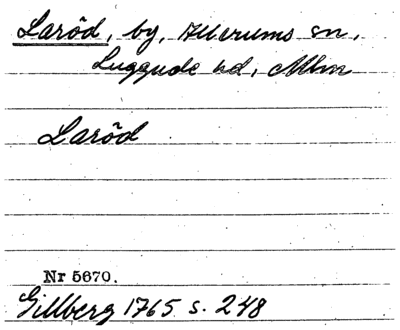 Laröd, by, Allerums sn,
Luggude hd, Mlm
Laröd
Nr 5670.
Gillberg 1765 s. 248